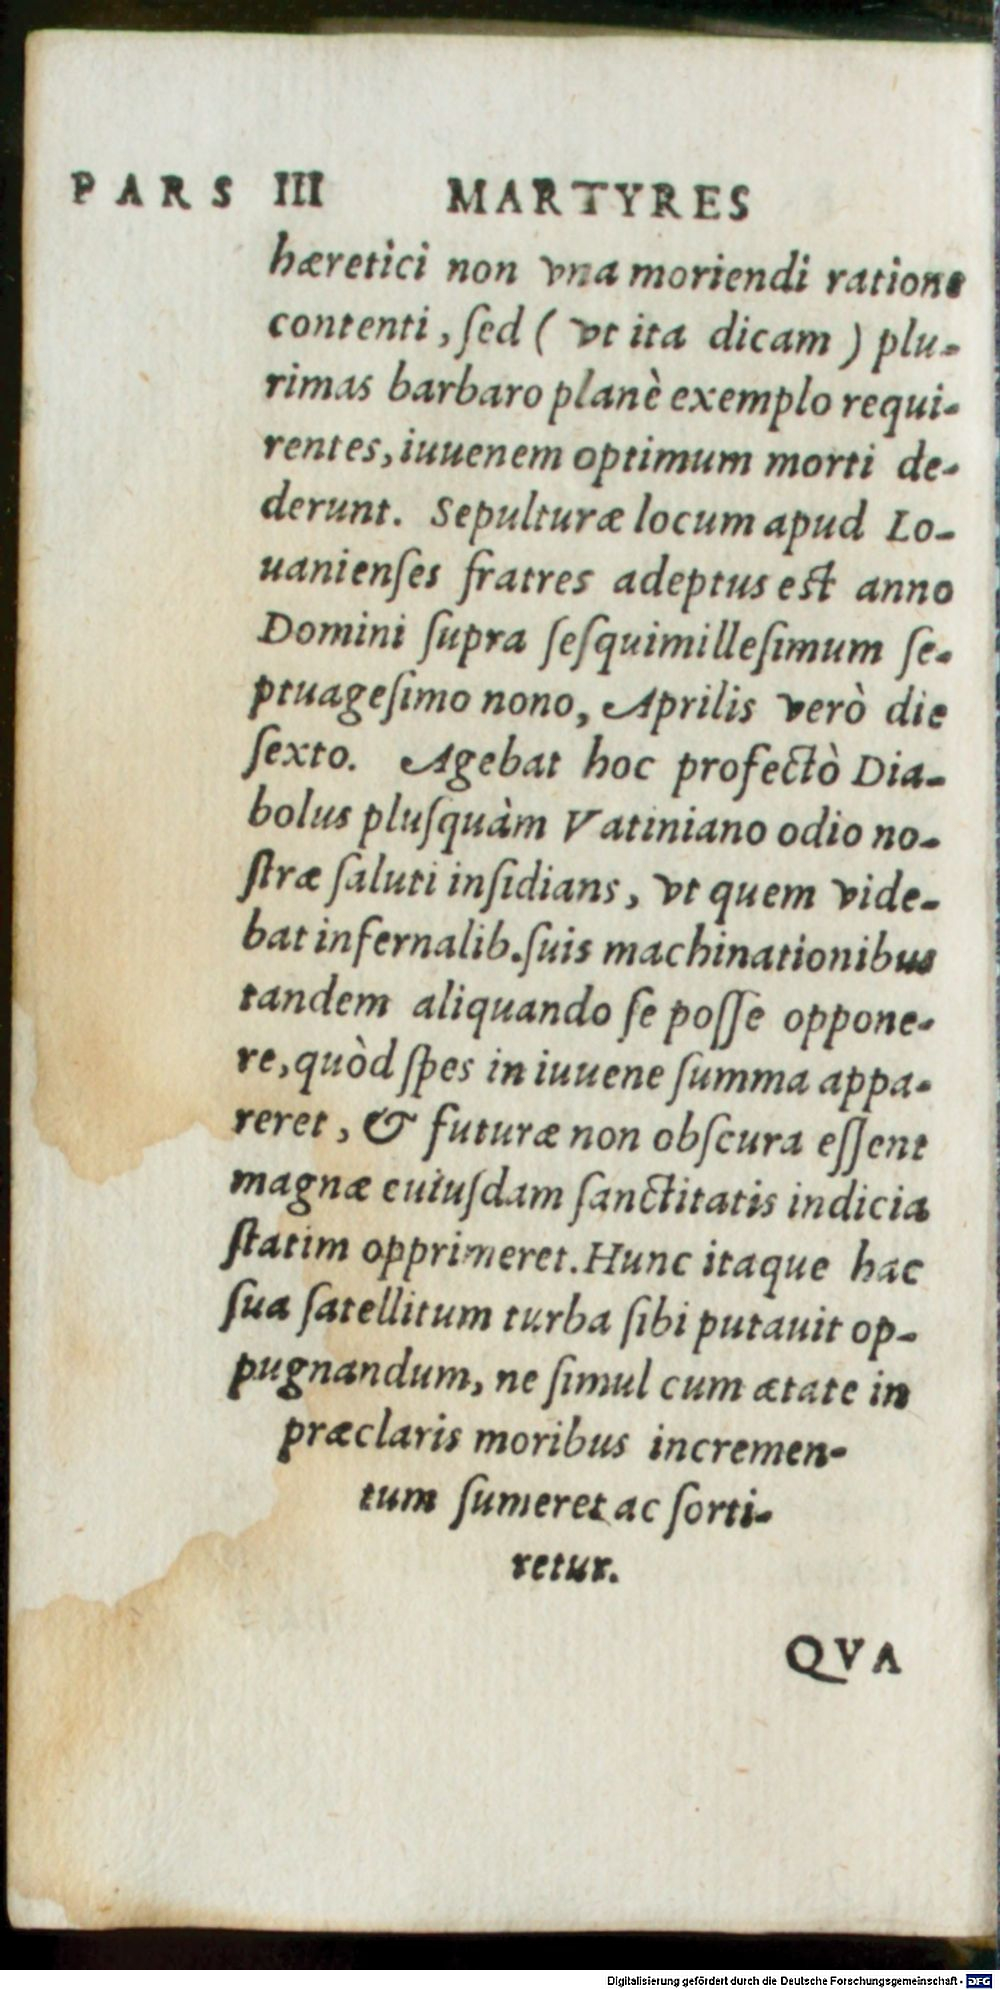 PARS III MARTYRES
hæretici non vna moriendi ratione
contenti, ſed ( vt ita dicam ) plu-
rimas barbaro planè exemplo requi-
rentes, iuuenem optimum morti de-
derunt. Sepulturæ locum apud Lo-
uanienſes fratres adeptus eſt anno
Domini ſupra ſeſquimilleſimum ſe-
ptuageſimo nono, Aprilis verò die
ſexto. Agebat hoc profectò Dia-
bolus pluſquàm Vatiniano odio no-
ſtræ ſaluti inſidians, vt quem vide-
bat infernalib. ſuis machinationibus
tandem aliquando ſe poſſe oppone-
re, quòd ſpes in iuuene ſumma appa-
reret, & futuræ non obſcura eſſent
magnæ cuiuſdam ſanctitatis indicia
ſtatim opprimeret. Hunc itaque hac
ſua ſatellitum turba ſibi putauit op-
pugnandum, ne ſimul cum ætate in
præclaris moribus incremen-
tum ſumeret ac ſorti-
retur.
QVA
Digitalisierung gefördert durch die Deutsche Forschungsgemeinschaft - DFG